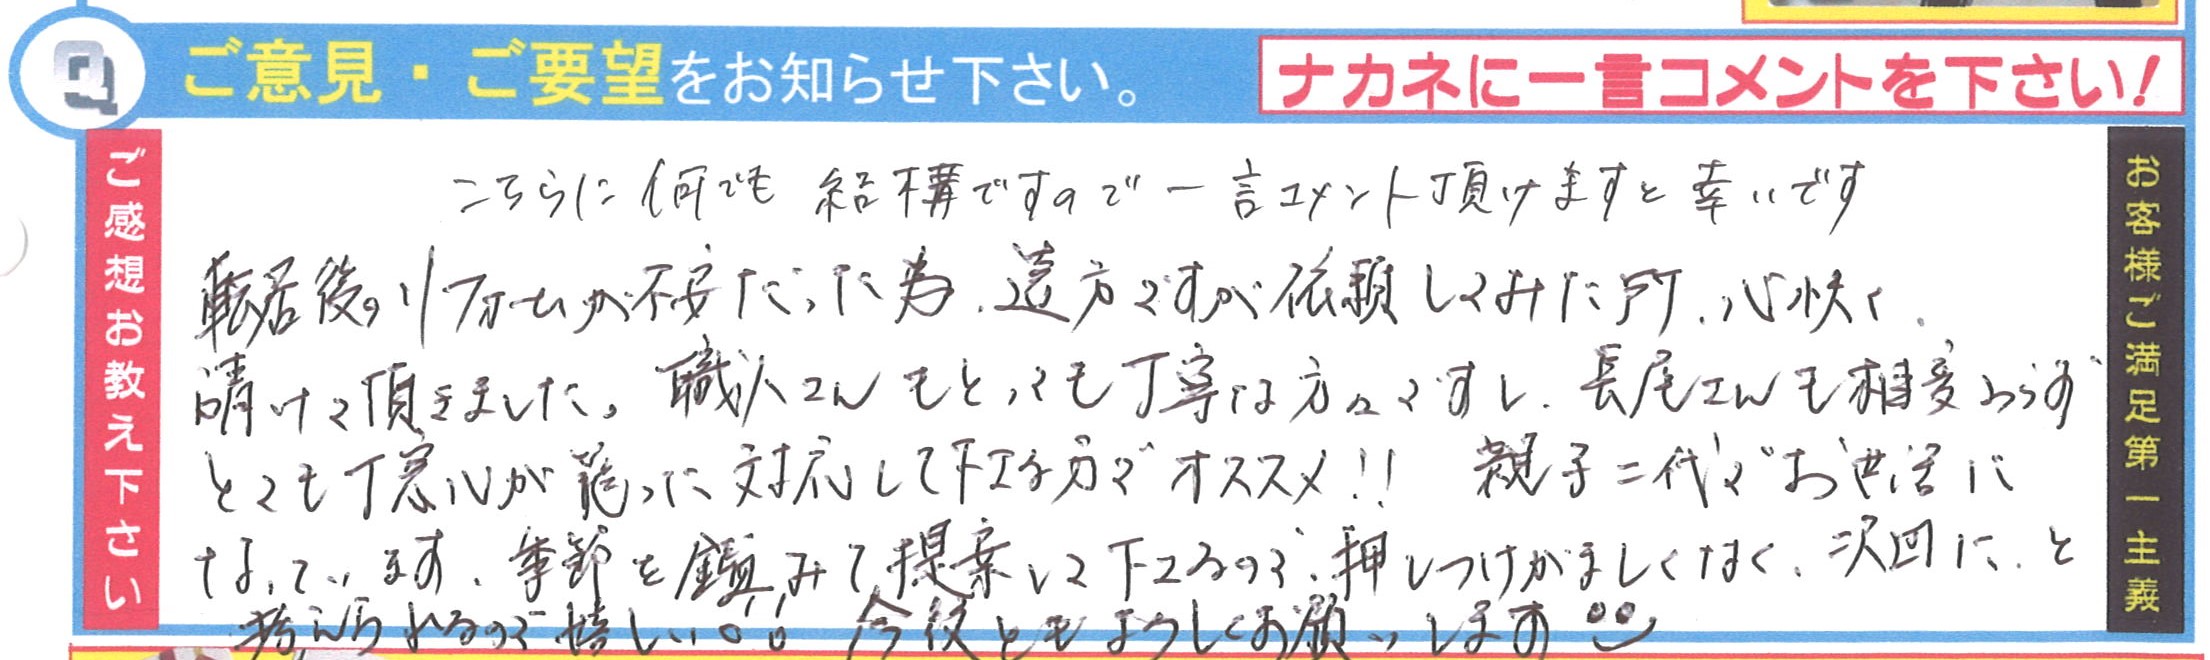 Q ご意見・ご要望をお知らせ下さい。
ナカネに一言コメントを下さい!
ご感想お教え下さい
こちらに何でも結構ですので一言コメント頂けますと幸いです
転居後のリフォームが不安だった為、遠方ですが依頼してみた所、心快く、
請けて頂きました。職人さんもとっても丁寧な方々ですし、長尾さんも相変わらず
とても丁寧心が篭った対応して下さる方でオススメ!! 親子二代でお世話に
なっています。季節を鑑みて提案して下さるので、押しつけがましくなく、次回に、と
考えられるので嬉しい!! 今後ともよろしくお願いします
お客様ご満足第一主義